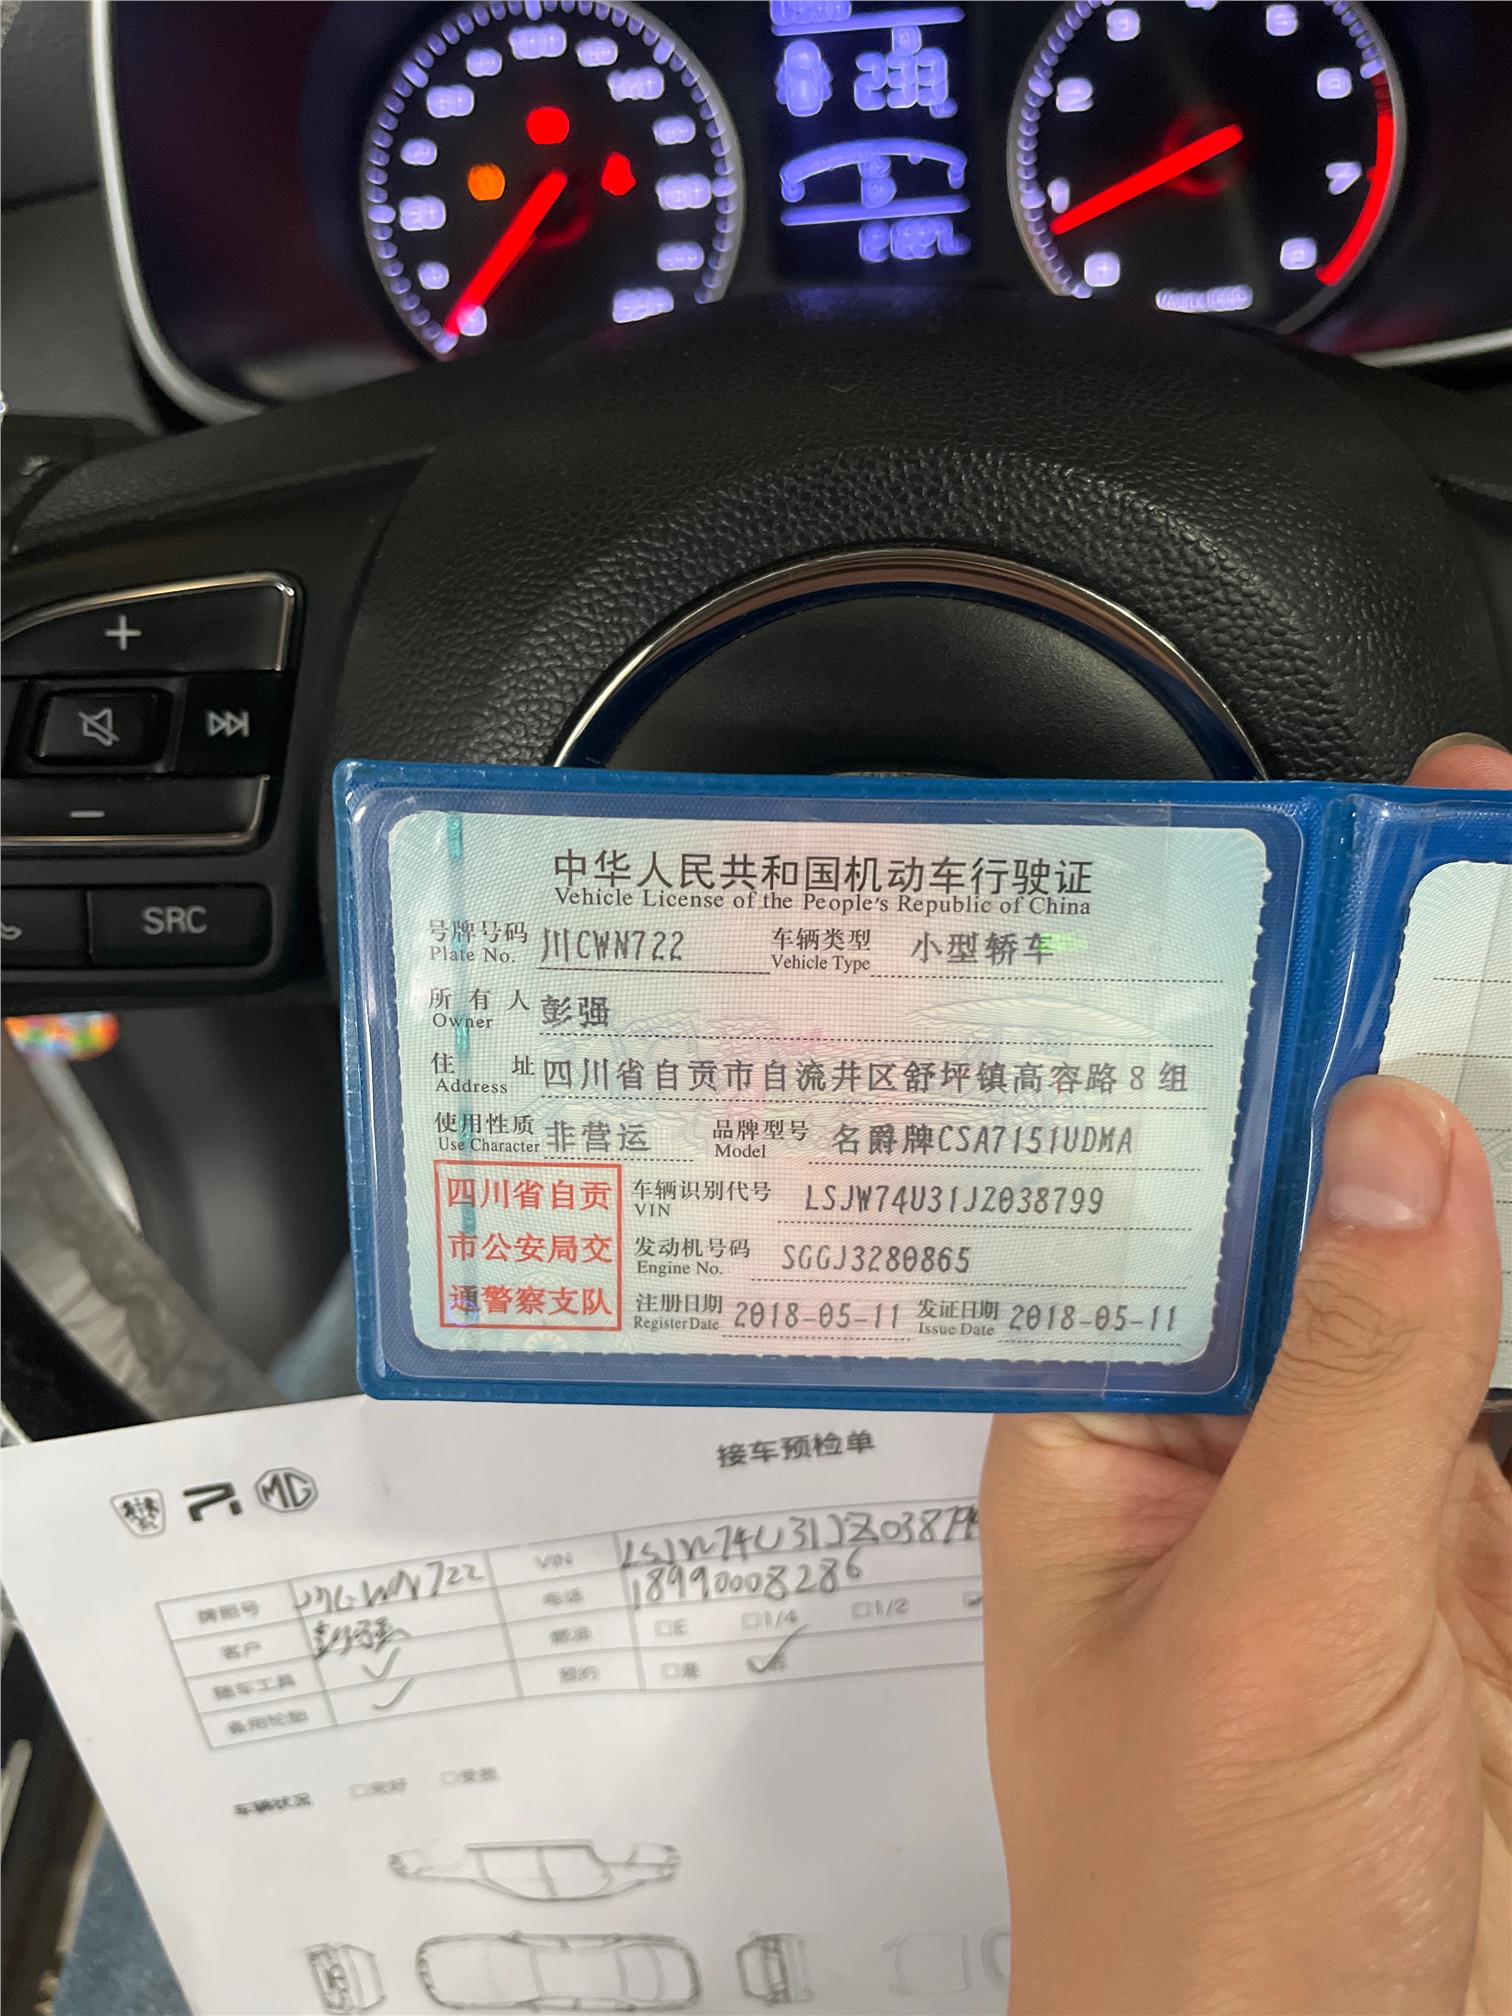 SRC
中华人民共和国机动车行驶证
Vehicle License of the People's Republic of China
号牌号码 川CWN722 车辆类型 小型轿车
Plate No. Vehicle Type
所有人 彭强
Owner
住址 四川省自贡市自流井区舒坪镇高容路8组
Address
使用性质 非营运 品牌型号 名爵牌CSA7151UDMA
Use Character Model
四川省自贡
市公安局交
通警察支队
车辆识别代号 LSJW74U31JZ038799
VIN
发动机号码 SGGJ3280865
Engine No.
注册日期 2018-05-11 发证日期 2018-05-11
Register Date Issue Date
接车预检单
MG
牌照号 川CWN722 VIN LSJW74U31JZ03879
客户 彭强 电话 18990008286
随车工具 燃油 E 1/4 1/2
备用轮胎 预约 是 否
车辆状况 完好 受损